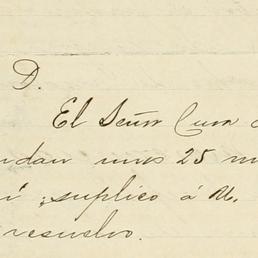 D.
El Señor Cura
undan unos 25 m
suplico á U.
resuelvo.